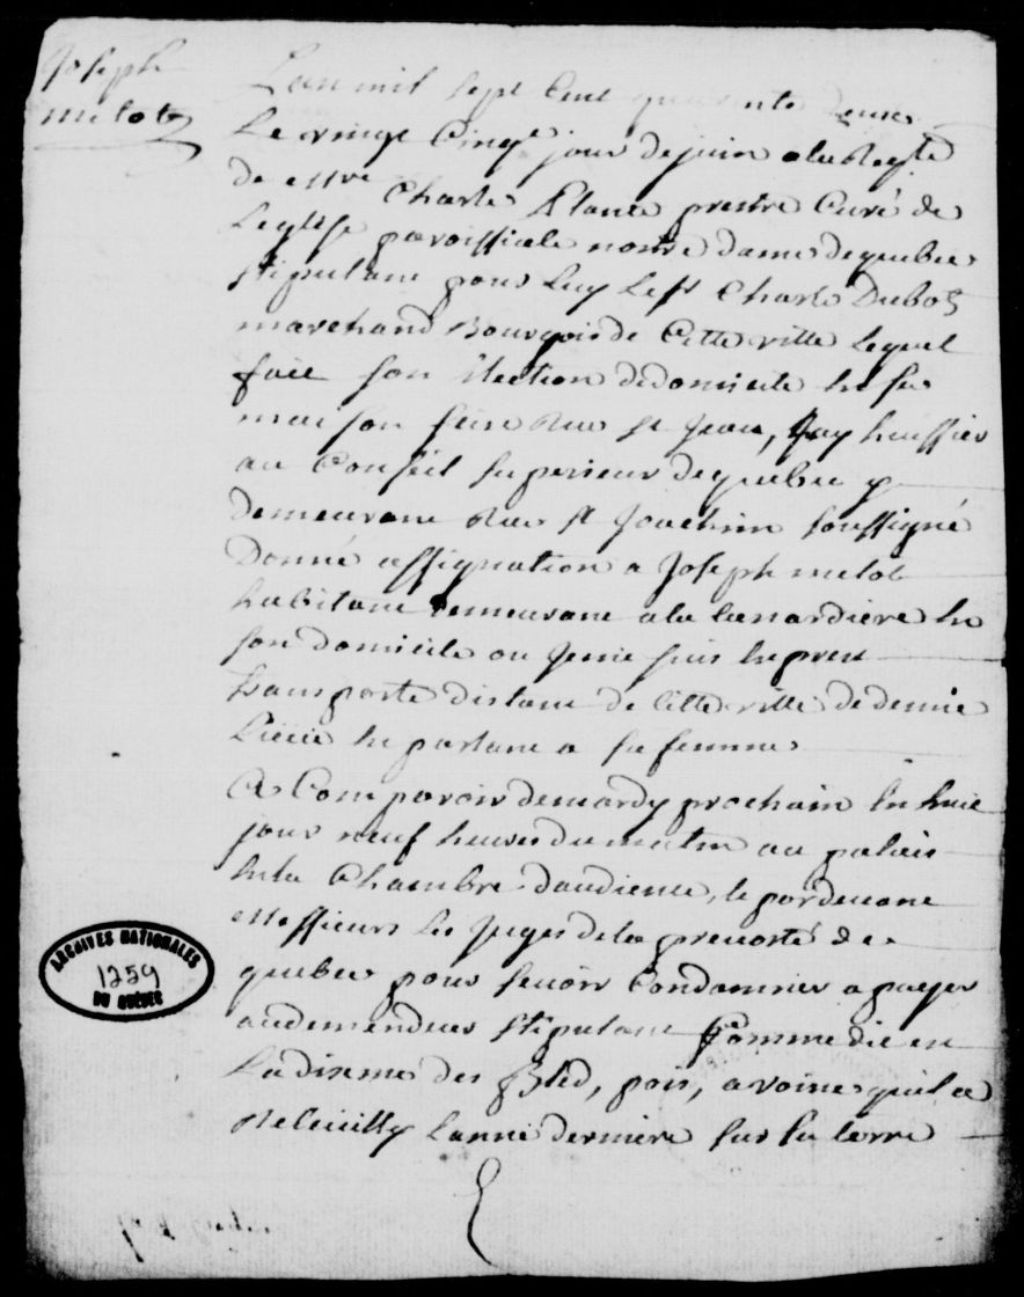 Joseph
melot
L'an mil sept Cent quarente deux
Le vingt Cinqe jour de juin a la Reqte
de Mre Charle Plante prestre Curé de
Leglise paroissiale nostre dame de quebec
stipulant pour Luy Le sr Charle Dubois
marchand Bourgois de Cette ville Lequel
fait son Election de domicile En sa
maison size Rue st Jean, Jay huissier
au Conseil superieur de quebec y
demeurant Rue st Joachim soussigné
Donné assignation a Joseph melot
habitant demeurant a la Canardiere En
son domicile ou Je me suis Expres
transporté distant de Cette ville de demie
Lieüe En parlant a sa femme
A Comparoir de mardy prochain En huit
jour neuf heures du matin au palais
En la Chambre daudience, le pardevant
Messieurs Les Juges de la prevosté de
quebec pour se voir Condamner a payer
au demendeur stipulant Comme dit est
La dixme des Bled, pois, avoines quil a
Recueilly Lanné derniere sur sa terre
ARCHIVES NATIONALES
1259
DU QUÉBEC